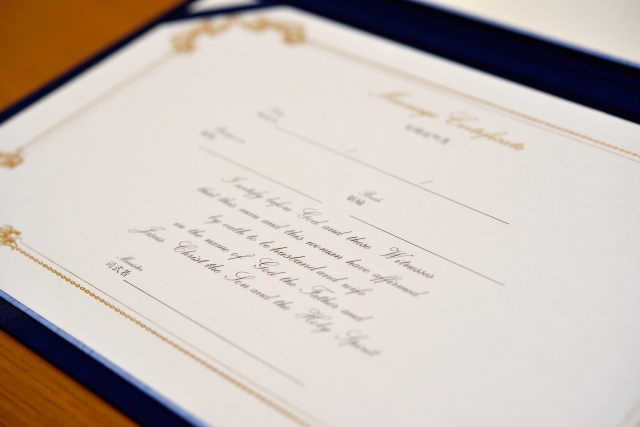 Marriage Certificate
結婚証明書
Bride
新婦
I testify before God and these Witnesses
that this man and this woman have affirmed
by oath to be husband and wife
in the name of God the Father and
Jesus Christ the Son and the Holy Spirit
Minister
司式者